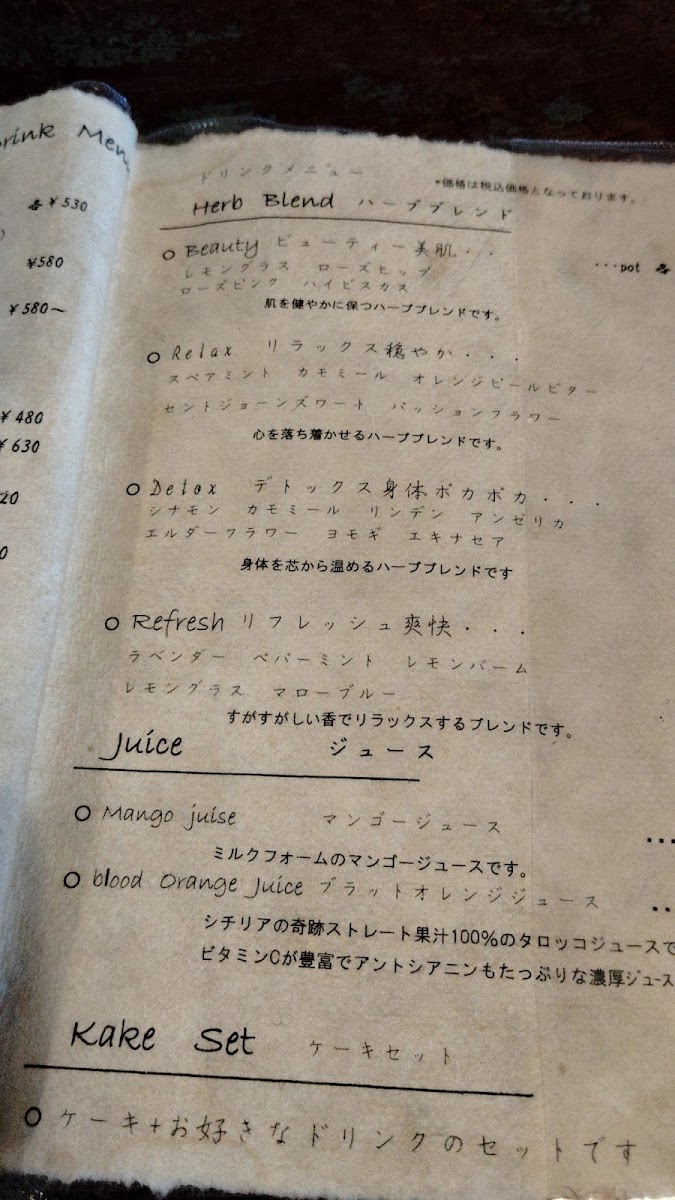 rink Menu
各¥530
¥580
¥580～
¥480
¥630
20
0
ドリンクメニュー
*価格は税込価格となっております。
Herb Blend ハーブブレンド
○ Beauty ビューティー美肌・・
...pot 各
レモングラス ローズヒップ
ローズピンク ハイビスカス
肌を健やかに保つハーブブレンドです。
○ Relax リラックス穏やか・・・
スペアミント カモミール オレンジピールビター
セントジョーンズワート パッションフラワー
心を落ち着かせるハーブブレンドです。
○ Detox デトックス身体ポカポカ・・・
シナモン カモミール リンデン アンゼリカ
エルダーフラワー ヨモギ エキナセア
身体を芯から温めるハーブブレンドです
○ Refresh リフレッシュ爽快・・・
ラベンダー ペパーミント レモンバーム
レモングラス マローブルー
すがすがしい香でリラックスするブレンドです。
Juice ジュース
○ Mango juise マンゴージュース
...
ミルクフォームのマンゴージュースです。
○ blood Orange Juice ブラットオレンジジュース
..
シチリアの奇跡ストレート果汁100%のタロッコジュースで
ビタミンCが豊富でアントシアニンもたっぷりな濃厚ジュース
Kake Set ケーキセット
○ ケーキ+お好きなドリンクのセットです